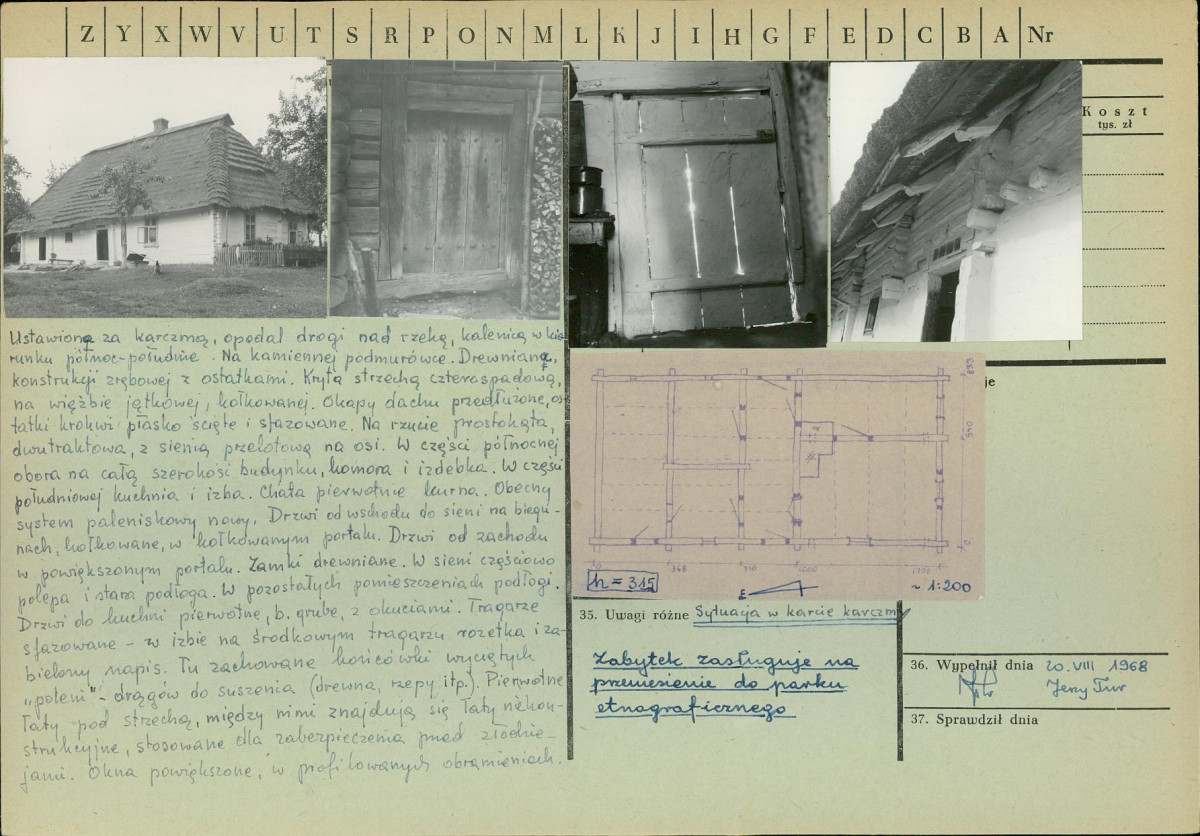 Z Y X W V U T S R P O N M L K J I H G F E D C B A Nr
Koszt
tys. zł
Ustawiona za karczmą, opodal drogi nad rzeką, kalenicą w kie-
runku północ-południe. Na kamiennej podmurówce. Drewniana,
konstrukcji zrębowej z ostatkami. Kryta strzechą czterospadową,
na więźbie jętkowej, kołkowanej. Okapy dachu przedłużone, os-
tatki krokwi płasko ścięte i sfazowane. Na rzucie prostokąta,
dwutraktowa, z sienią przelotową na osi. W części północnej
obora na całą szerokość budynku, komora i izdebka. W części
południowej kuchnia i izba. Chata pierwotnie kurna. Obecny
system paleniskowy nowy. Drzwi od wschodu do sieni na biegu-
nach, kołkowane, w kołkowanym portalu. Drzwi od zachodu
w powiększonym portalu. Zamki drewniane. W sieni częściowo
polepa i stara podłoga. W pozostałych pomieszczeniach podłogi.
Drzwi do kuchni pierwotne, b. grube, z okuciami. Tragarze
sfazowane - w izbie na środkowym tragarzu rozetka i za-
bielony napis. Tu zachowane końcówki wyciętych
"poleni" - drągów do suszenia (drewna, rzepy itp.). Pierwotne
łaty pod strzechą, między nimi znajdują się łaty niekon-
strukcyjne, stosowane dla zabezpieczenia przed złodzie-
jami. Okna powiększone, w profilowanych obramieniach.
je
893
540
0
0 368 710 1000
h = 315
~ 1:200
35. Uwagi różne Sytuacja w karcie karczmy
Zabytek zasługuje na
przeniesienie do parku
etnograficznego
36. Wypełnił dnia 20.VIII 1968
Jerzy Tur
37. Sprawdził dnia